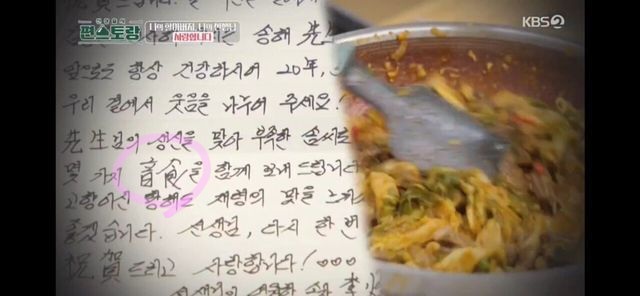 편스토랑
나의 할아버지, 나의 선생님
사랑합니다
KBS2
는 송해 先生
앞으로도 항상 건강하시어 20年,
우리 곁에서 웃음을 나누어 주세요!
先生님의 생신을 맞아 부족한 솜씨로
몇 가지 音食을 함께 보내 드립니다
고향이신 황해도 재령의 맛을 느끼
좋겠습니다. 선생님, 다시 한 번
祝賀드리고 사랑합니다! ooo
선생님의